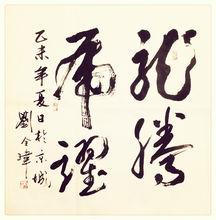 龍騰
虎躍
乙未年夏日於京城
劉